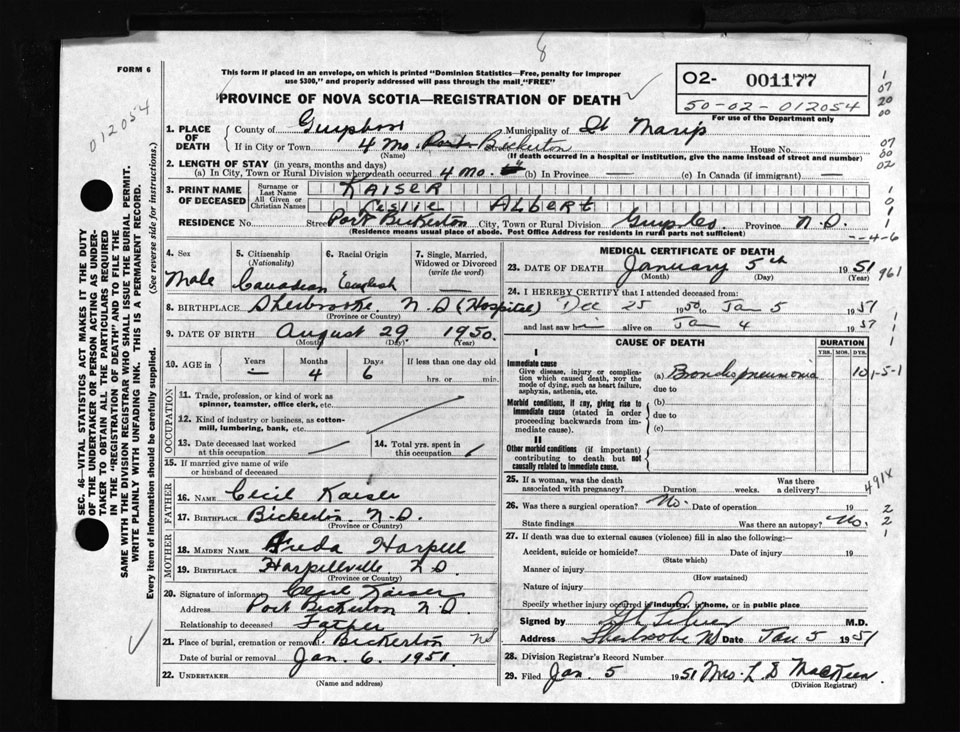 8
FORM 6
This form if placed in an envelope, on which is printed "Dominion Statistics—Free, penalty for improper
use $300," and properly addressed will pass through the mail "FREE"
PROVINCE OF NOVA SCOTIA—REGISTRATION OF DEATH
02- 001177
50-02-012054
For use of the Department only
012054
1. PLACE OF DEATH
County of Municipality of St Marys
If in City or Town 4 Mo. Port Bickerton House No.
(Name) (If death occurred in a hospital or institution, give the name instead of street and number)
2. LENGTH OF STAY (in years, months and days)
(a) In City, Town or Rural Division where death occurred 4 Mo. (b) In Province — (c) In Canada (if immigrant) —
3. PRINT NAME OF DECEASED
Surname or Last Name KAISER
All Given or Christian Names LESLIE ALBERT
RESIDENCE No. Street Port Bickerton City, Town or Rural Division Guysboro Province N.S.
(Residence means usual place of abode. Post Office Address for residents in rural parts not sufficient)
4. Sex
Male
5. Citizenship
(Nationality)
Canadian
6. Racial Origin
English
7. Single, Married, Widowed or Divorced
(write the word)
—
8. BIRTHPLACE Sherbrooke N.S (Hospital)
(Province or Country)
9. DATE OF BIRTH August 29 1950
(Month) (Day) (Year)
10. AGE in
Years Months Days If less than one day old
— 4 6 hrs. or min.
OCCUPATION
11. Trade, profession, or kind of work as
spinner, teamster, office clerk, etc.
12. Kind of industry or business, as cotton-
mill, lumbering, bank, etc.
13. Date deceased last worked
at this occupation
14. Total yrs. spent in
this occupation
15. If married give name of wife
or husband of deceased
FATHER
16. NAME Cecil Kaiser
17. BIRTHPLACE Bickerton N.S.
(Province or Country)
MOTHER
18. MAIDEN NAME Freda Harpell
19. BIRTHPLACE Harpellville N.S.
(Province or Country)
20. Signature of informant Cecil Kaiser
Address Port Bickerton N.S.
Relationship to deceased Father
21. Place of burial, cremation or removal Bickerton NS
Date of burial or removal Jan. 6. 1951.
22. UNDERTAKER
(Name and address)
MEDICAL CERTIFICATE OF DEATH
23. DATE OF DEATH January 5th 1951
(Month) (Day) (Year)
24. I HEREBY CERTIFY that I attended deceased from:
Dec 25 1950 to Jan 5 1951
and last saw him alive on Jan 4 1951
CAUSE OF DEATH
DURATION
YRS. MOS. DYS.
I
Immediate cause
Give disease, injury or complica-
tion which caused death, not the
mode of dying, such as heart failure,
asphyxia, asthenia, etc.
(a) Bronchopneumonia 10
due to
Morbid conditions, if any, giving rise to
immediate cause (stated in order
proceeding backwards from im-
mediate cause).
(b)
due to
(c)
II
Other morbid conditions (if important)
contributing to death but not
causally related to immediate cause.
25. If a woman, was the death
associated with pregnancy? Duration weeks. Was there
a delivery?
26. Was there a surgical operation? No. Date of operation 19
State findings Was there an autopsy? No.
27. If death was due to external causes (violence) fill in also the following:—
Accident, suicide or homicide? Date of injury 19
(State which)
Manner of injury
(How sustained)
Nature of injury
Specify whether injury occurred in industry, in home, or in public place
Signed by M.D.
Address Sherbrooke NS Date Jan 5 1951
28. Division Registrar's Record Number
29. Filed Jan. 5 1951 Mrs. L B MacKeen
(Division Registrar)
SEC. 46—VITAL STATISTICS ACT MAKES IT THE DUTY
OF THE UNDERTAKER OR PERSON ACTING AS UNDER-
TAKER TO OBTAIN ALL THE PARTICULARS REQUIRED
IN THE "REGISTRATION OF DEATH" AND TO FILE THE
SAME WITH THE DIVISION REGISTRAR WHO SHALL ISSUE THE BURIAL PERMIT.
WRITE PLAINLY WITH UNFADING INK. THIS IS A PERMANENT RECORD.
Every item of information should be carefully supplied. (See reverse side for instructions.)
1
07
20
00
07
00
02
--4-6
961
1-5-1
491X
2
2
1